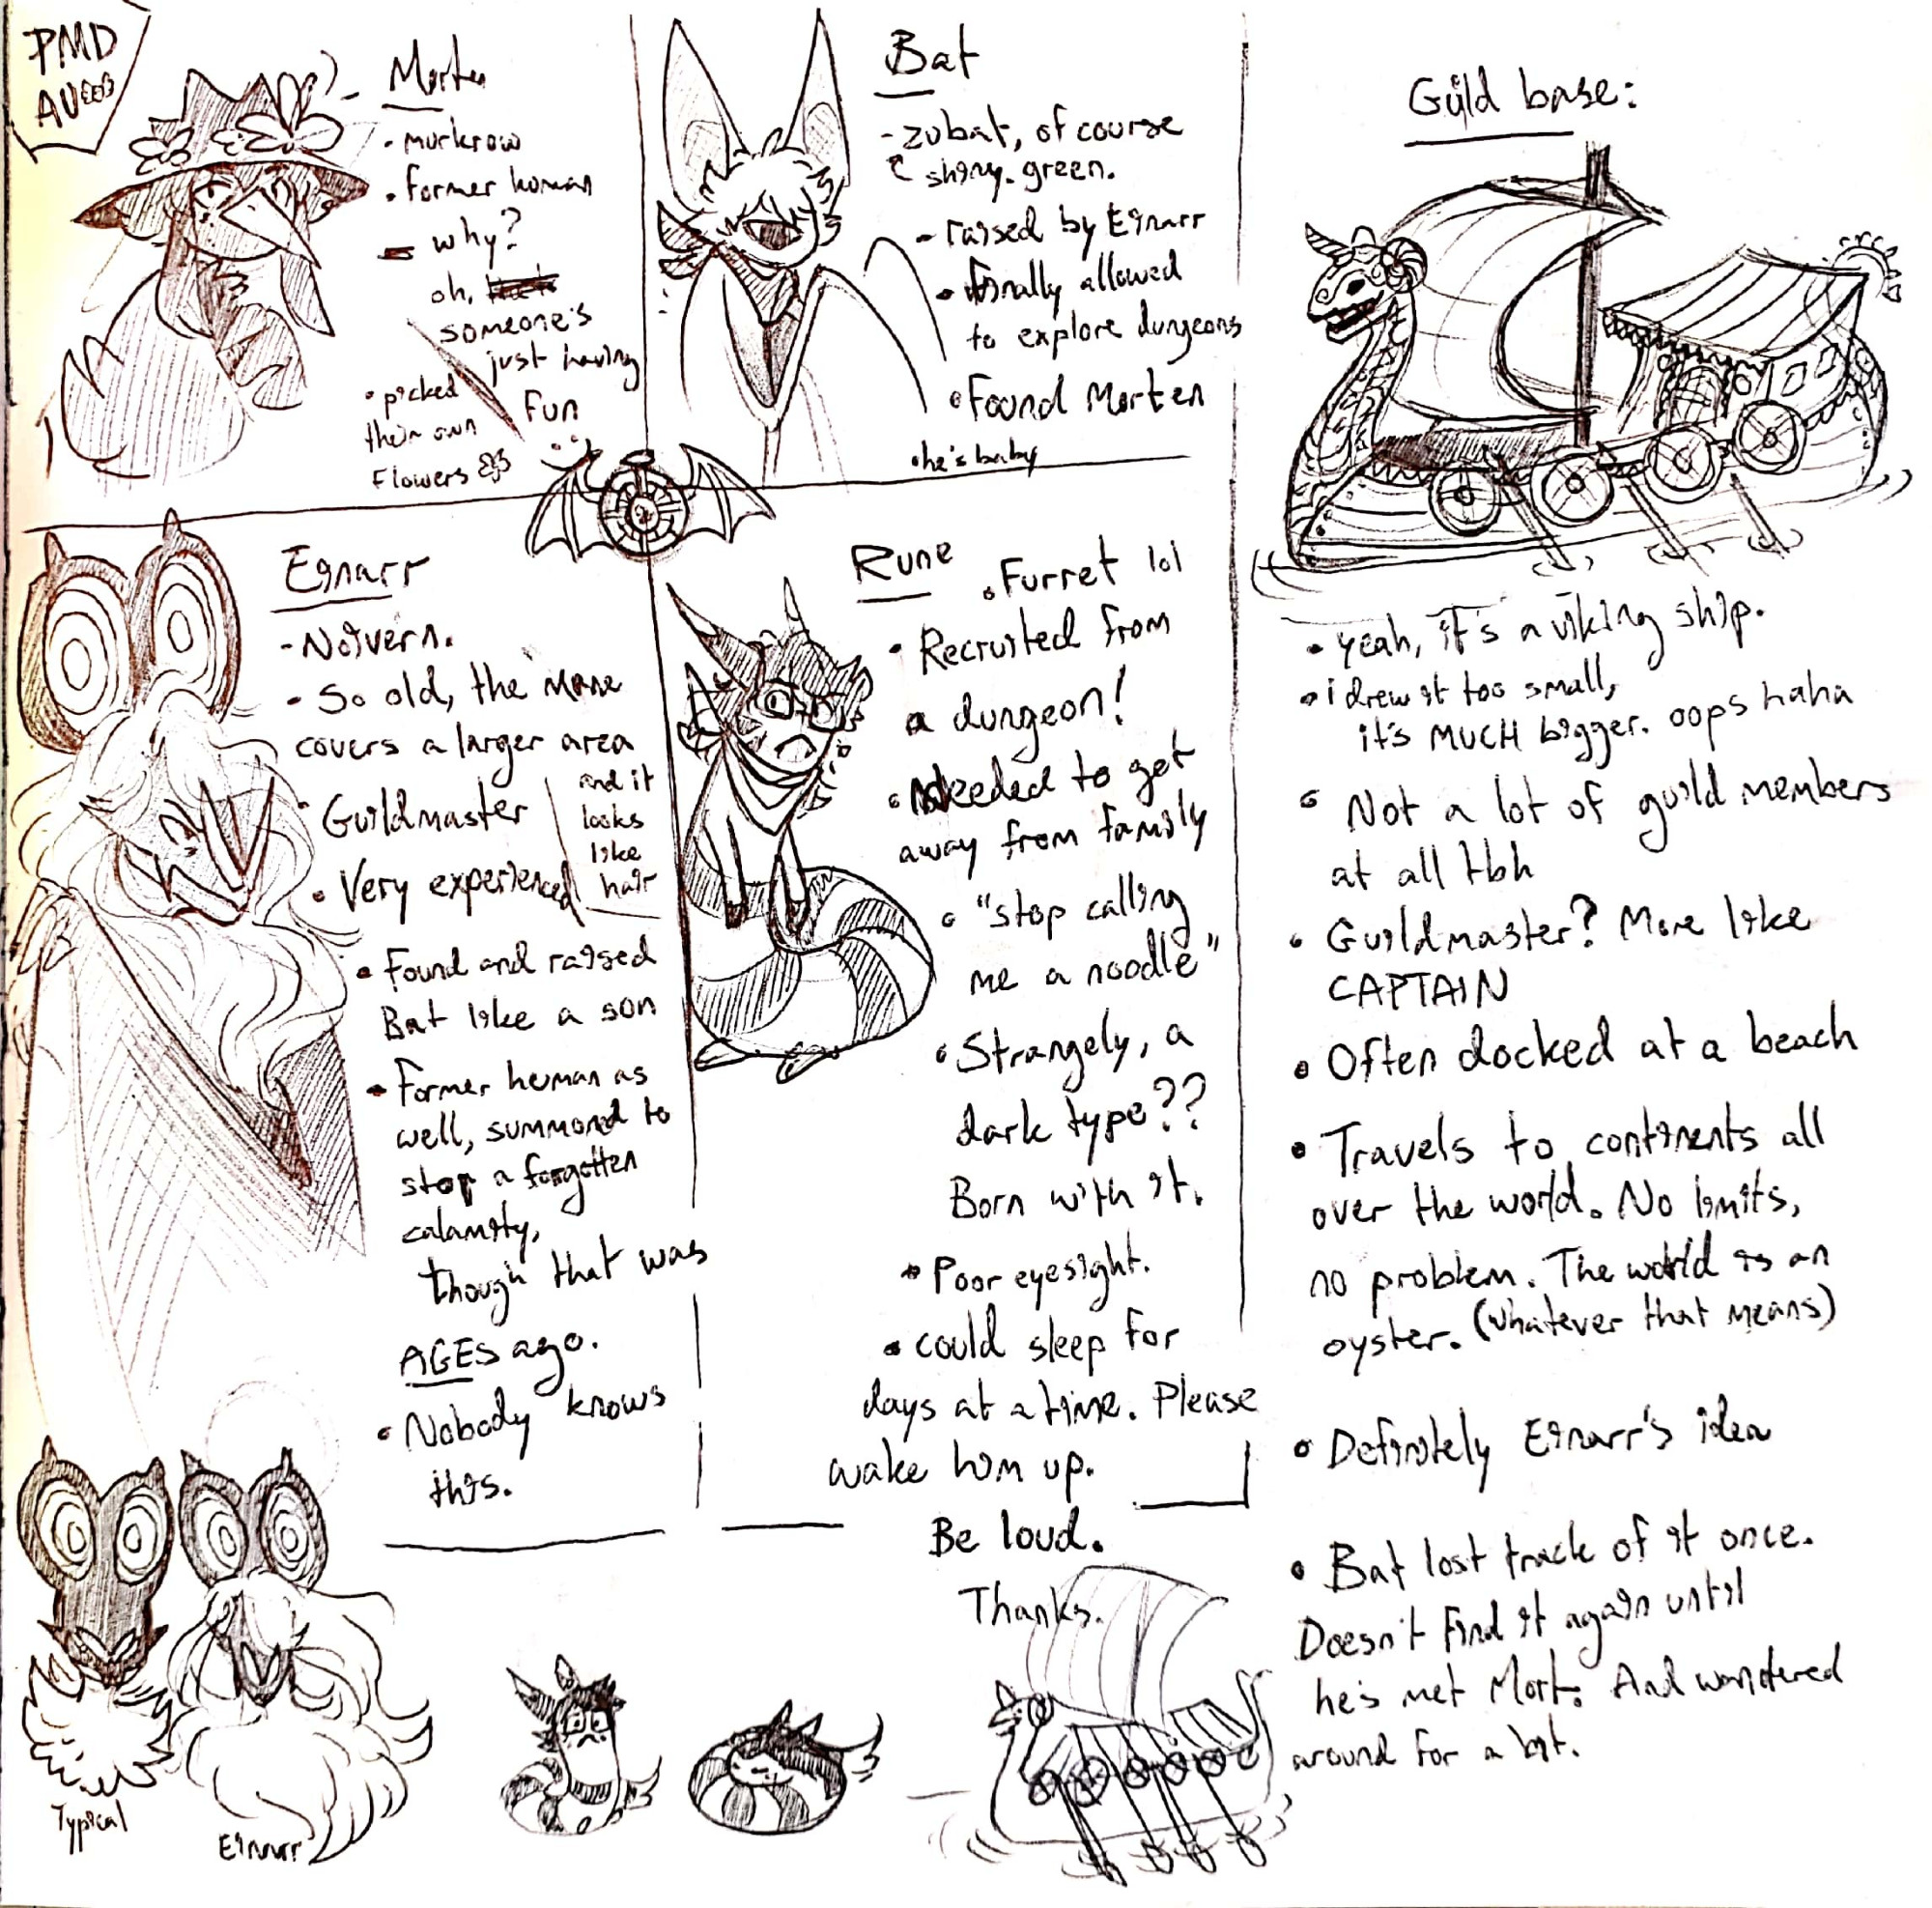 PMD
AU
Morten
• murkrow
• former human
- why?
oh,
someone's
just having
fun
• picked
their own
flowers
Bat
- zubat, of course
shiny. green.
- raised by Einarr
• finally allowed
to explore dungeons
• Found Morten
• he's baby
Einarr
- Noivern.
• So old, the mane
covers a larger area
and it
looks
like
hair
• Guildmaster
• Very experienced
• Found and raised
Bat like a son
• Former human as
well, summond to
stop a forgotten
calamity,
though that was
AGES ago.
• Nobody knows
this.
Typical
Einarr
Rune
• Furret lol
• Recruited from
a dungeon!
• Needed to get
away from family
• "stop calling
me a noodle"
• Strangely, a
dark type??
Born with it.
• Poor eyesight.
• could sleep for
days at a time. Please
wake him up.
Be loud.
Thanks.
Guild base:
• yeah, it's a viking ship.
• i drew it too small,
it's MUCH bigger. oops haha
• Not a lot of guild members
at all tbh
• Guildmaster? More like
CAPTAIN
• Often docked at a beach
• Travels to continents all
over the world. No limits,
no problem. The world is an
oyster. (whatever that means)
• Definitely Einarr's idea
• Bat lost track of it once.
Doesn't find it again until
he's met Mort. And wandered
around for a bit.